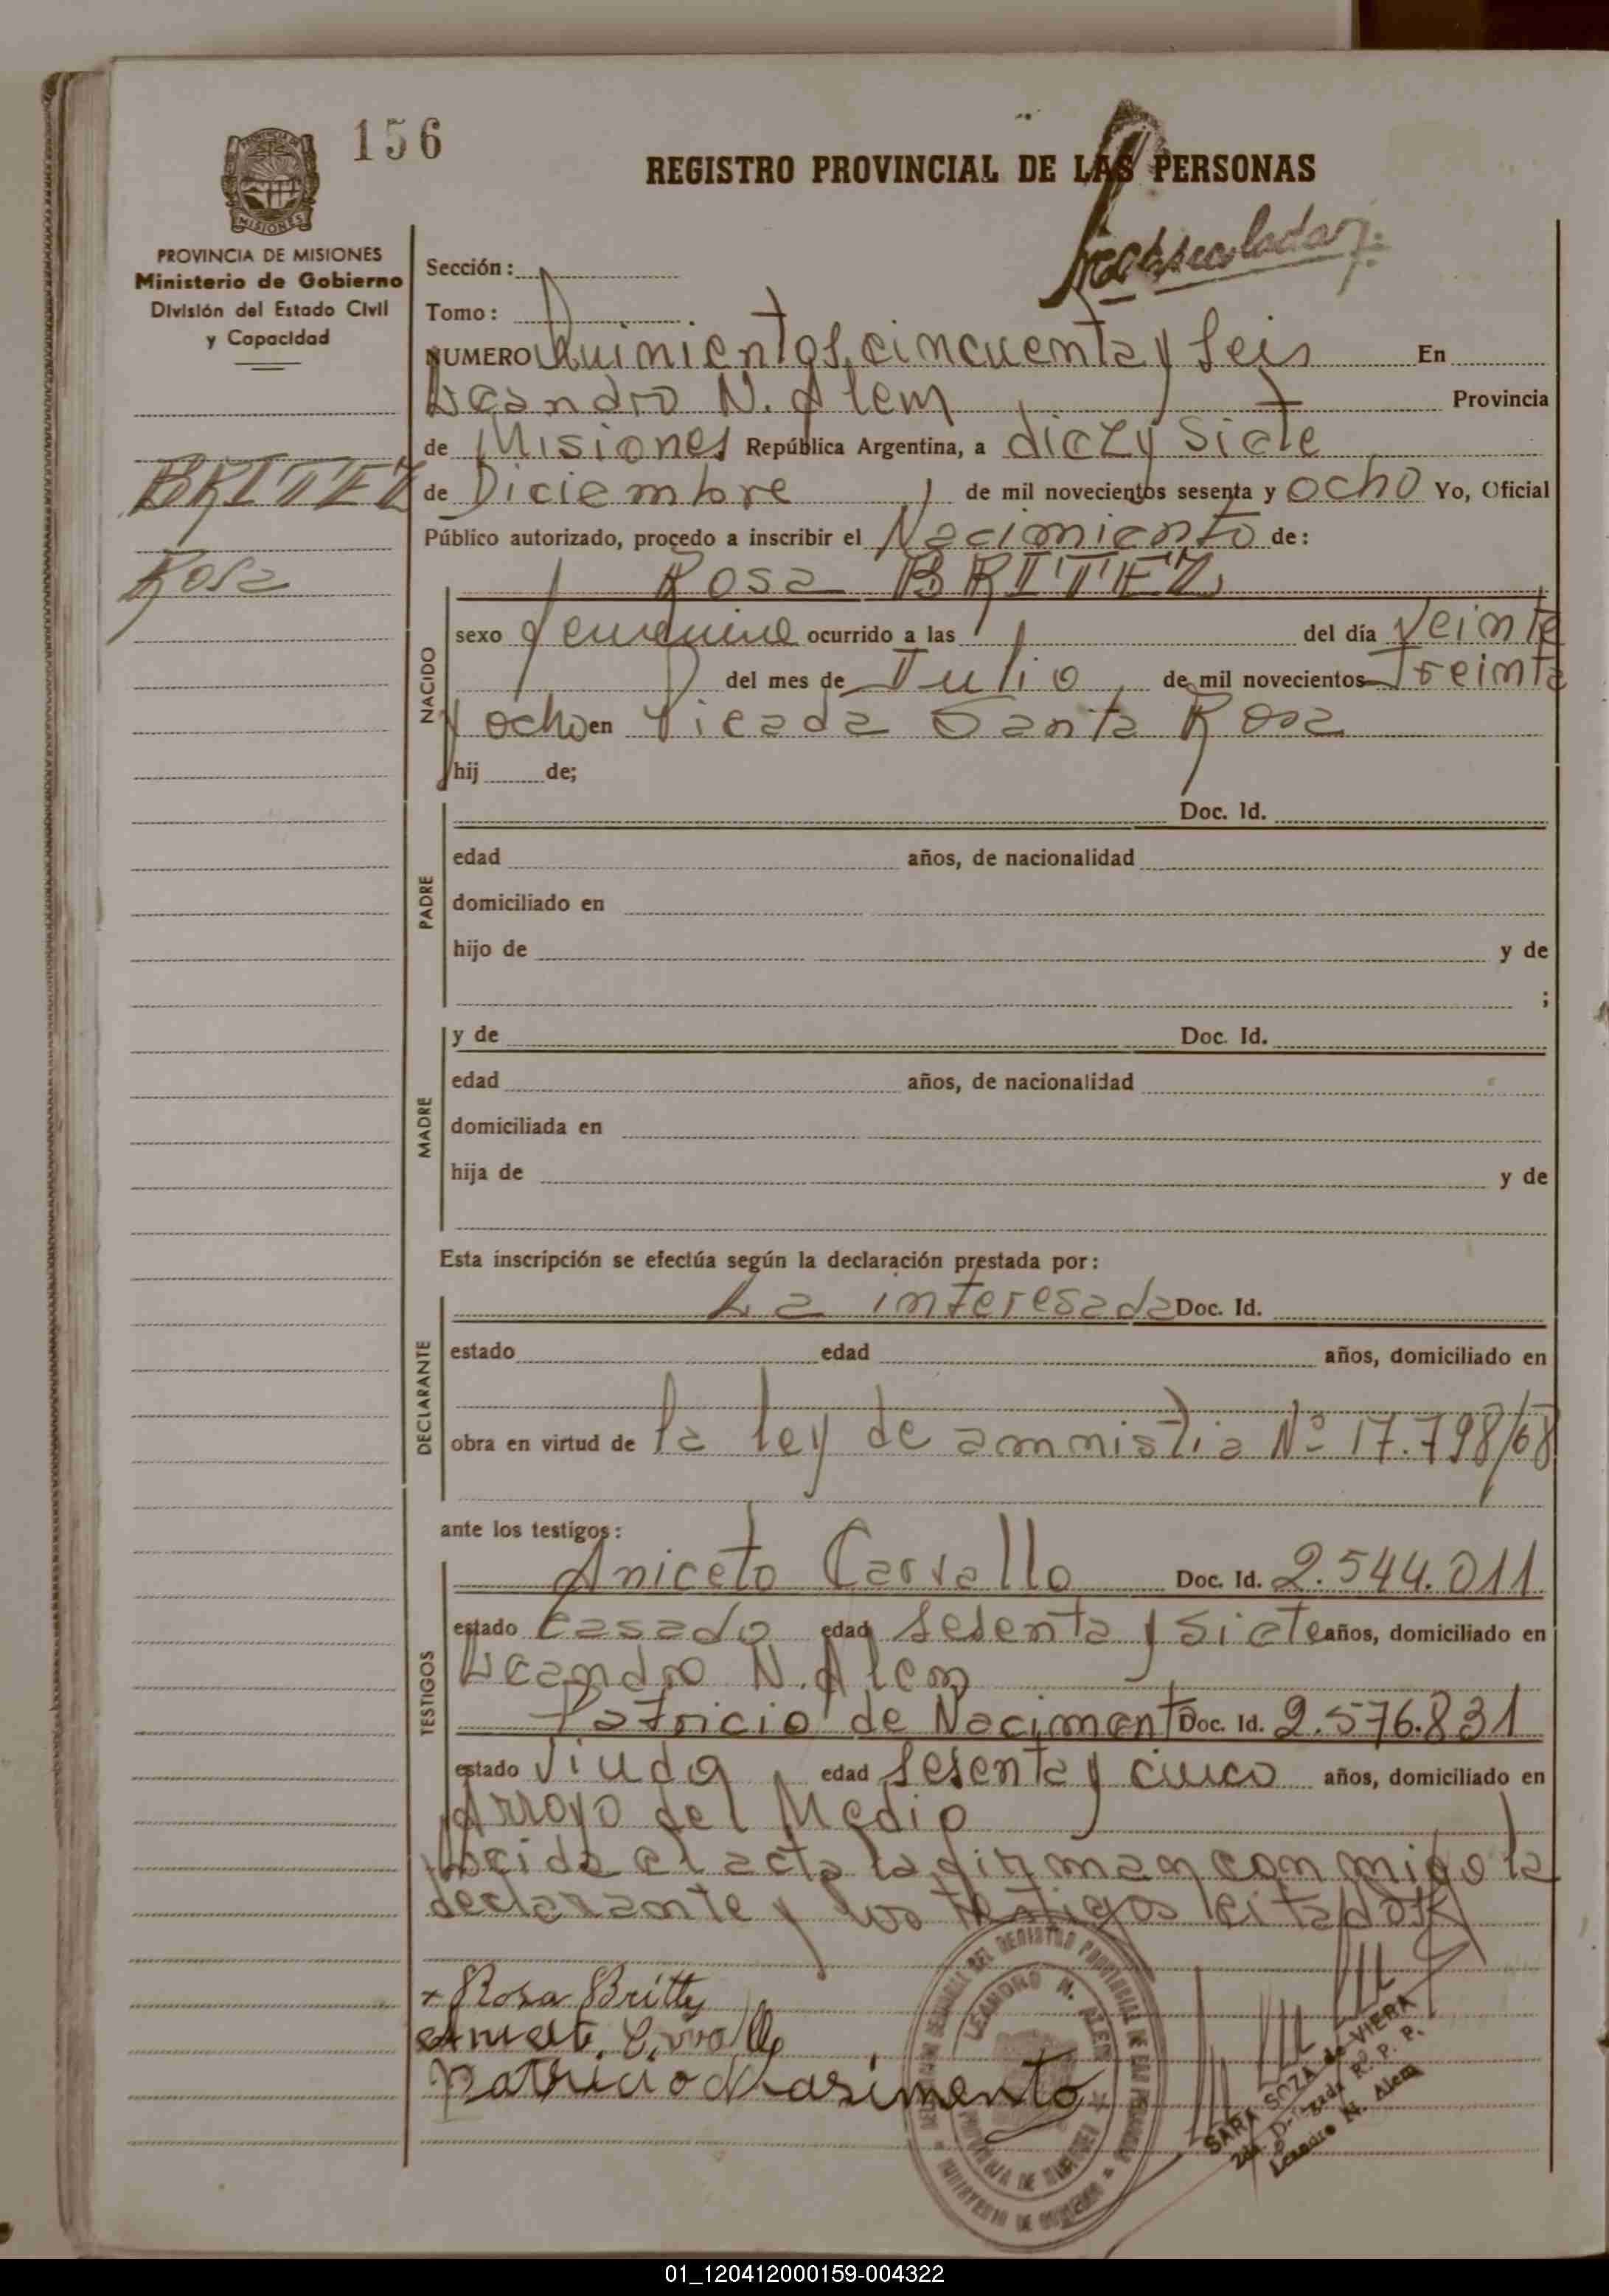 156
REGISTRO PROVINCIAL DE LAS PERSONAS
MISIONES
PROVINCIA DE MISIONES
Ministerio de Gobierno
División del Estado Civil
y Capacidad
BRITEZ
Rosa
Sección:
Tomo:
NUMERO Quinientos cincuenta y seis En
Leandro N. Alem Provincia
de Misiones República Argentina, a diez y siete
de Diciembre de mil novecientos sesenta y ocho Yo, Oficial
Público autorizado, procedo a inscribir el Nacimiento de:
Rosa BRITEZ
NACIDO
sexo femenino ocurrido a las del día Veinte
del mes de Julio de mil novecientos Treinta
y ocho en Picada Santa Rosa
hij de;
PADRE
Doc. Id.
edad años, de nacionalidad
domiciliado en
hijo de y de
;
MADRE
y de Doc. Id.
edad años, de nacionalidad
domiciliada en
hija de y de
Esta inscripción se efectúa según la declaración prestada por:
DECLARANTE
La interesada Doc. Id.
estado edad años, domiciliado en
obra en virtud de la ley de amnistia Nº 17.798/68
ante los testigos:
TESTIGOS
Aniceto Carvallo Doc. Id. 2.544.011
estado Casado edad sesenta y siete años, domiciliado en
Leandro N. Alem
Patricio de Naciment Doc. Id. 2.576.831
estado viudo edad sesenta y cinco años, domiciliado en
Arroyo del Medio
Leida el acta la firman conmigo la
declarante y los testigos citados
x Rosa Britty
Patricio Nasimento
LEANDRO N. ALEM
PROVINCIA DE MISIONES
MINISTERIO DE GOBIERNO
SARA SOZA de VIERA
2da. Delegada R. P. P.
Leandro N. Alem
01_120412000159-004322